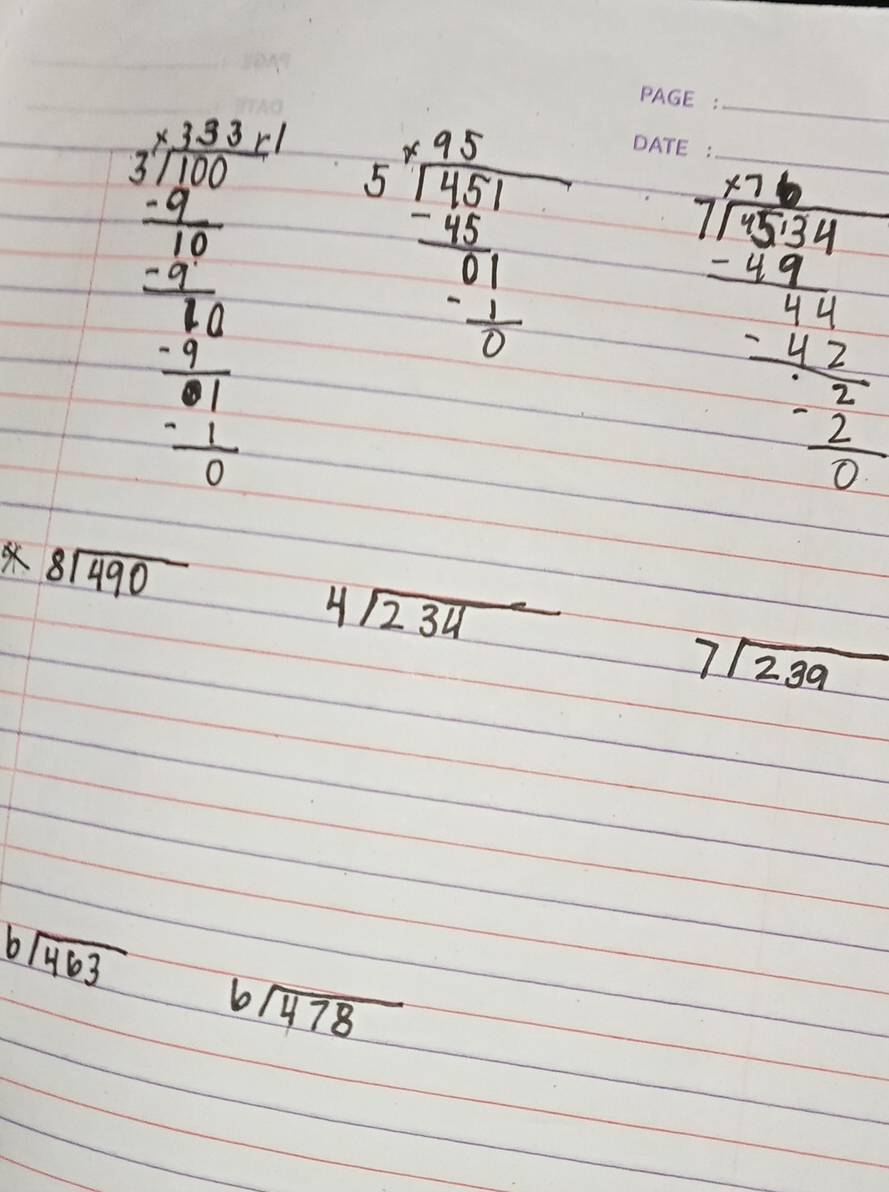 PAGE :
DATE :
×333 r1
3 100
-9
10
-9
10
-9
01
-1
0
×95
5 451
-45
01
-1
0
×76
7 4534
-49
44
-42
2
-2
0
8 490
4 234
7 239
6 463
6 478